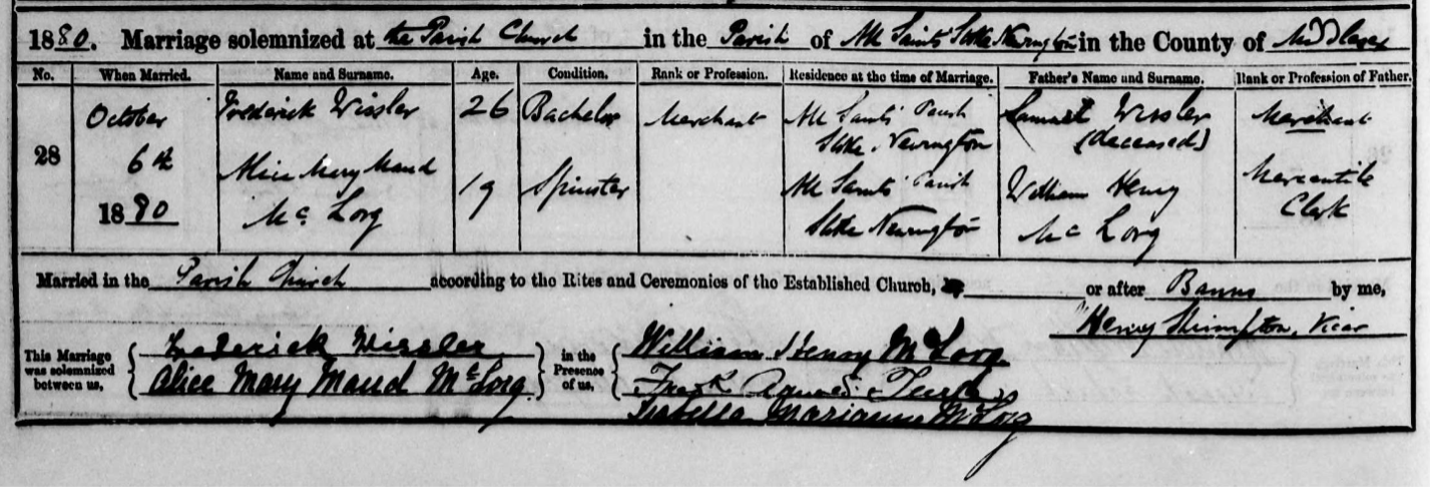 1880. Marriage solemnized at the Parish Church in the Parish of All Saints Stoke Newington in the County of Middlesex
No. When Married. Name and Surname. Age. Condition. Rank or Profession. Residence at the time of Marriage. Father's Name and Surname. Rank or Profession of Father.
28 October 6th 1880 Frederick Wissler 26 Bachelor Merchant All Saints' Parish Stoke Newington Samuel Wissler (deceased) Merchant
Alice Mary Maud McLorg 19 Spinster All Saints' Parish Stoke Newington William Henry McLorg Mercantile Clerk
Married in the Parish Church according to the Rites and Ceremonies of the Established Church, or after Banns by me,
Henry Shrimpton, Vicar
This Marriage was solemnized between us, Frederick Wissler in the Presence of us, William Henry McLorg
Alice Mary Maud McLorg Frank
Isabella Marianne McLorg